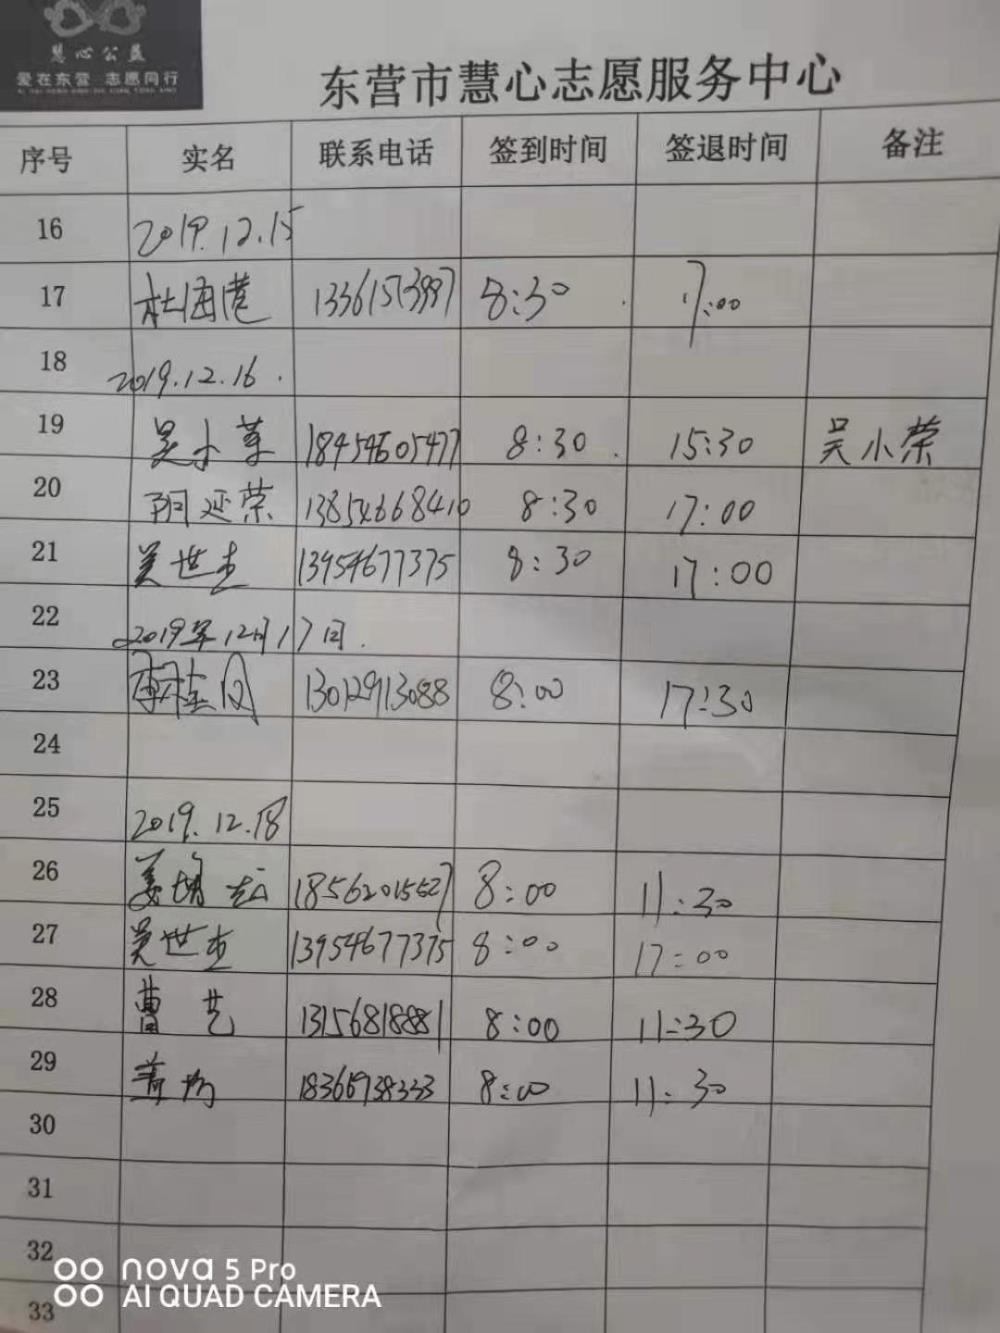 慧心公益
爱在东营 志愿同行
东营市慧心志愿服务中心
序号 实名 联系电话 签到时间 签退时间 备注
16 2019.12.15
17 杜海港 13361513997 8:30 17:00
18 2019.12.16.
19 吴小荣 18454605477 8:30 15:30 吴小荣
20 阴延荣 13854668410 8:30 17:00
21 吴世杰 13954677375 8:30 17:00
22 2019年12月17日.
23 桂凤 13012913088 8:00 17:30
24
25 2019.12.18
26 18562015527 8:00 11:30
27 吴世杰 13954677375 8:00 17:00
28 曹艺 13156818881 8:00 11:30
29 8:00 11:30
30
31
32
33
nova 5 Pro
AI QUAD CAMERA